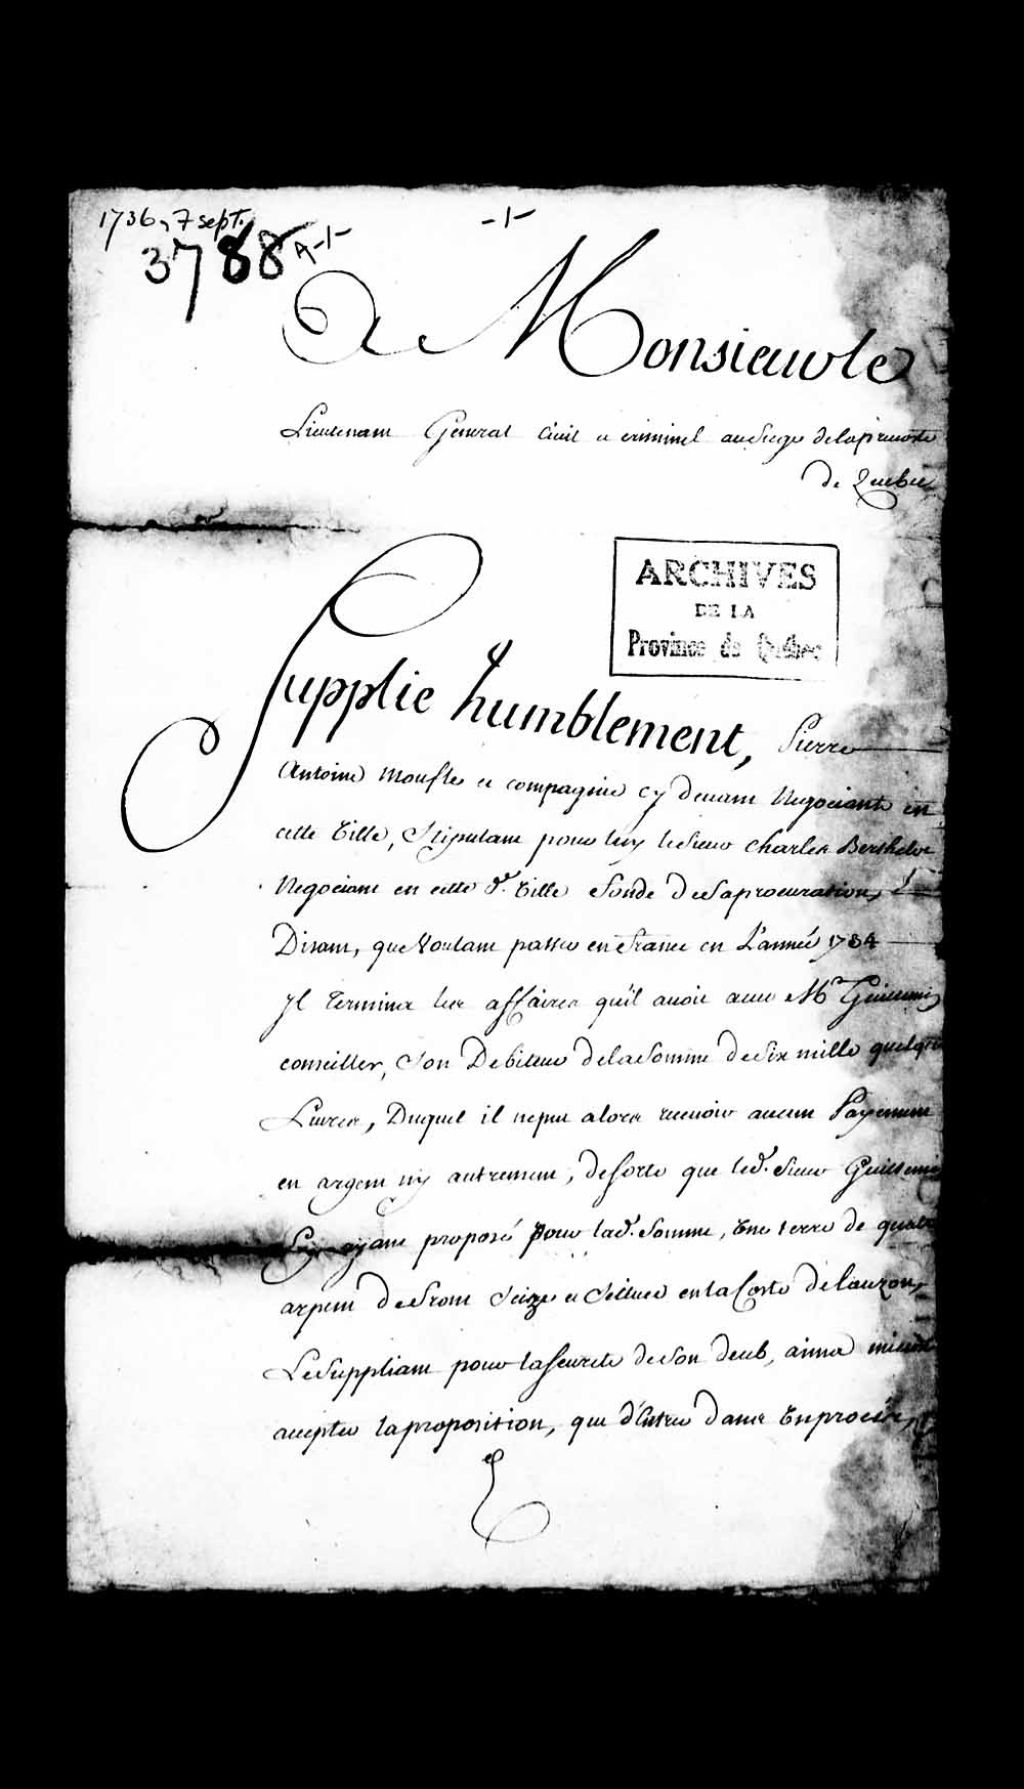 1736, 7 sept.
-1-
3788 A-1-
A Monsieur le
Lieutenant General Civil et criminel au Siege de la prevosté
de Quebec
ARCHIVES
DE LA
Province de Québec
Supplie humblement, Pierre
Antoine Moufle et compagnie cy devant Negociants en
cette Ville, Stipulant pour luy le Sieur Charles Berthelot
Negociant en cette d.e Ville fondé de Sa procuration,
Disant, que Voulant passer en france en L'année 1734
Il Termina les affaires qu'il avoit avec Mr Guillemin
conseiller, Son Debiteur de la Somme de Six mille quelques
Livres, Duquel il ne put alors recevoir aucun Payement
en argent ny autrement, de sorte que led. Sieur Guillemin
Luy ayant proposé pour lad. Somme, Une terre de quatre
arpent de front Seize et Scituée en la Coste de Lauzon,
Le Suppliant pour la seureté de Son deub, aima mieux
accepter la proposition, que d'Entrer dans Un procès,